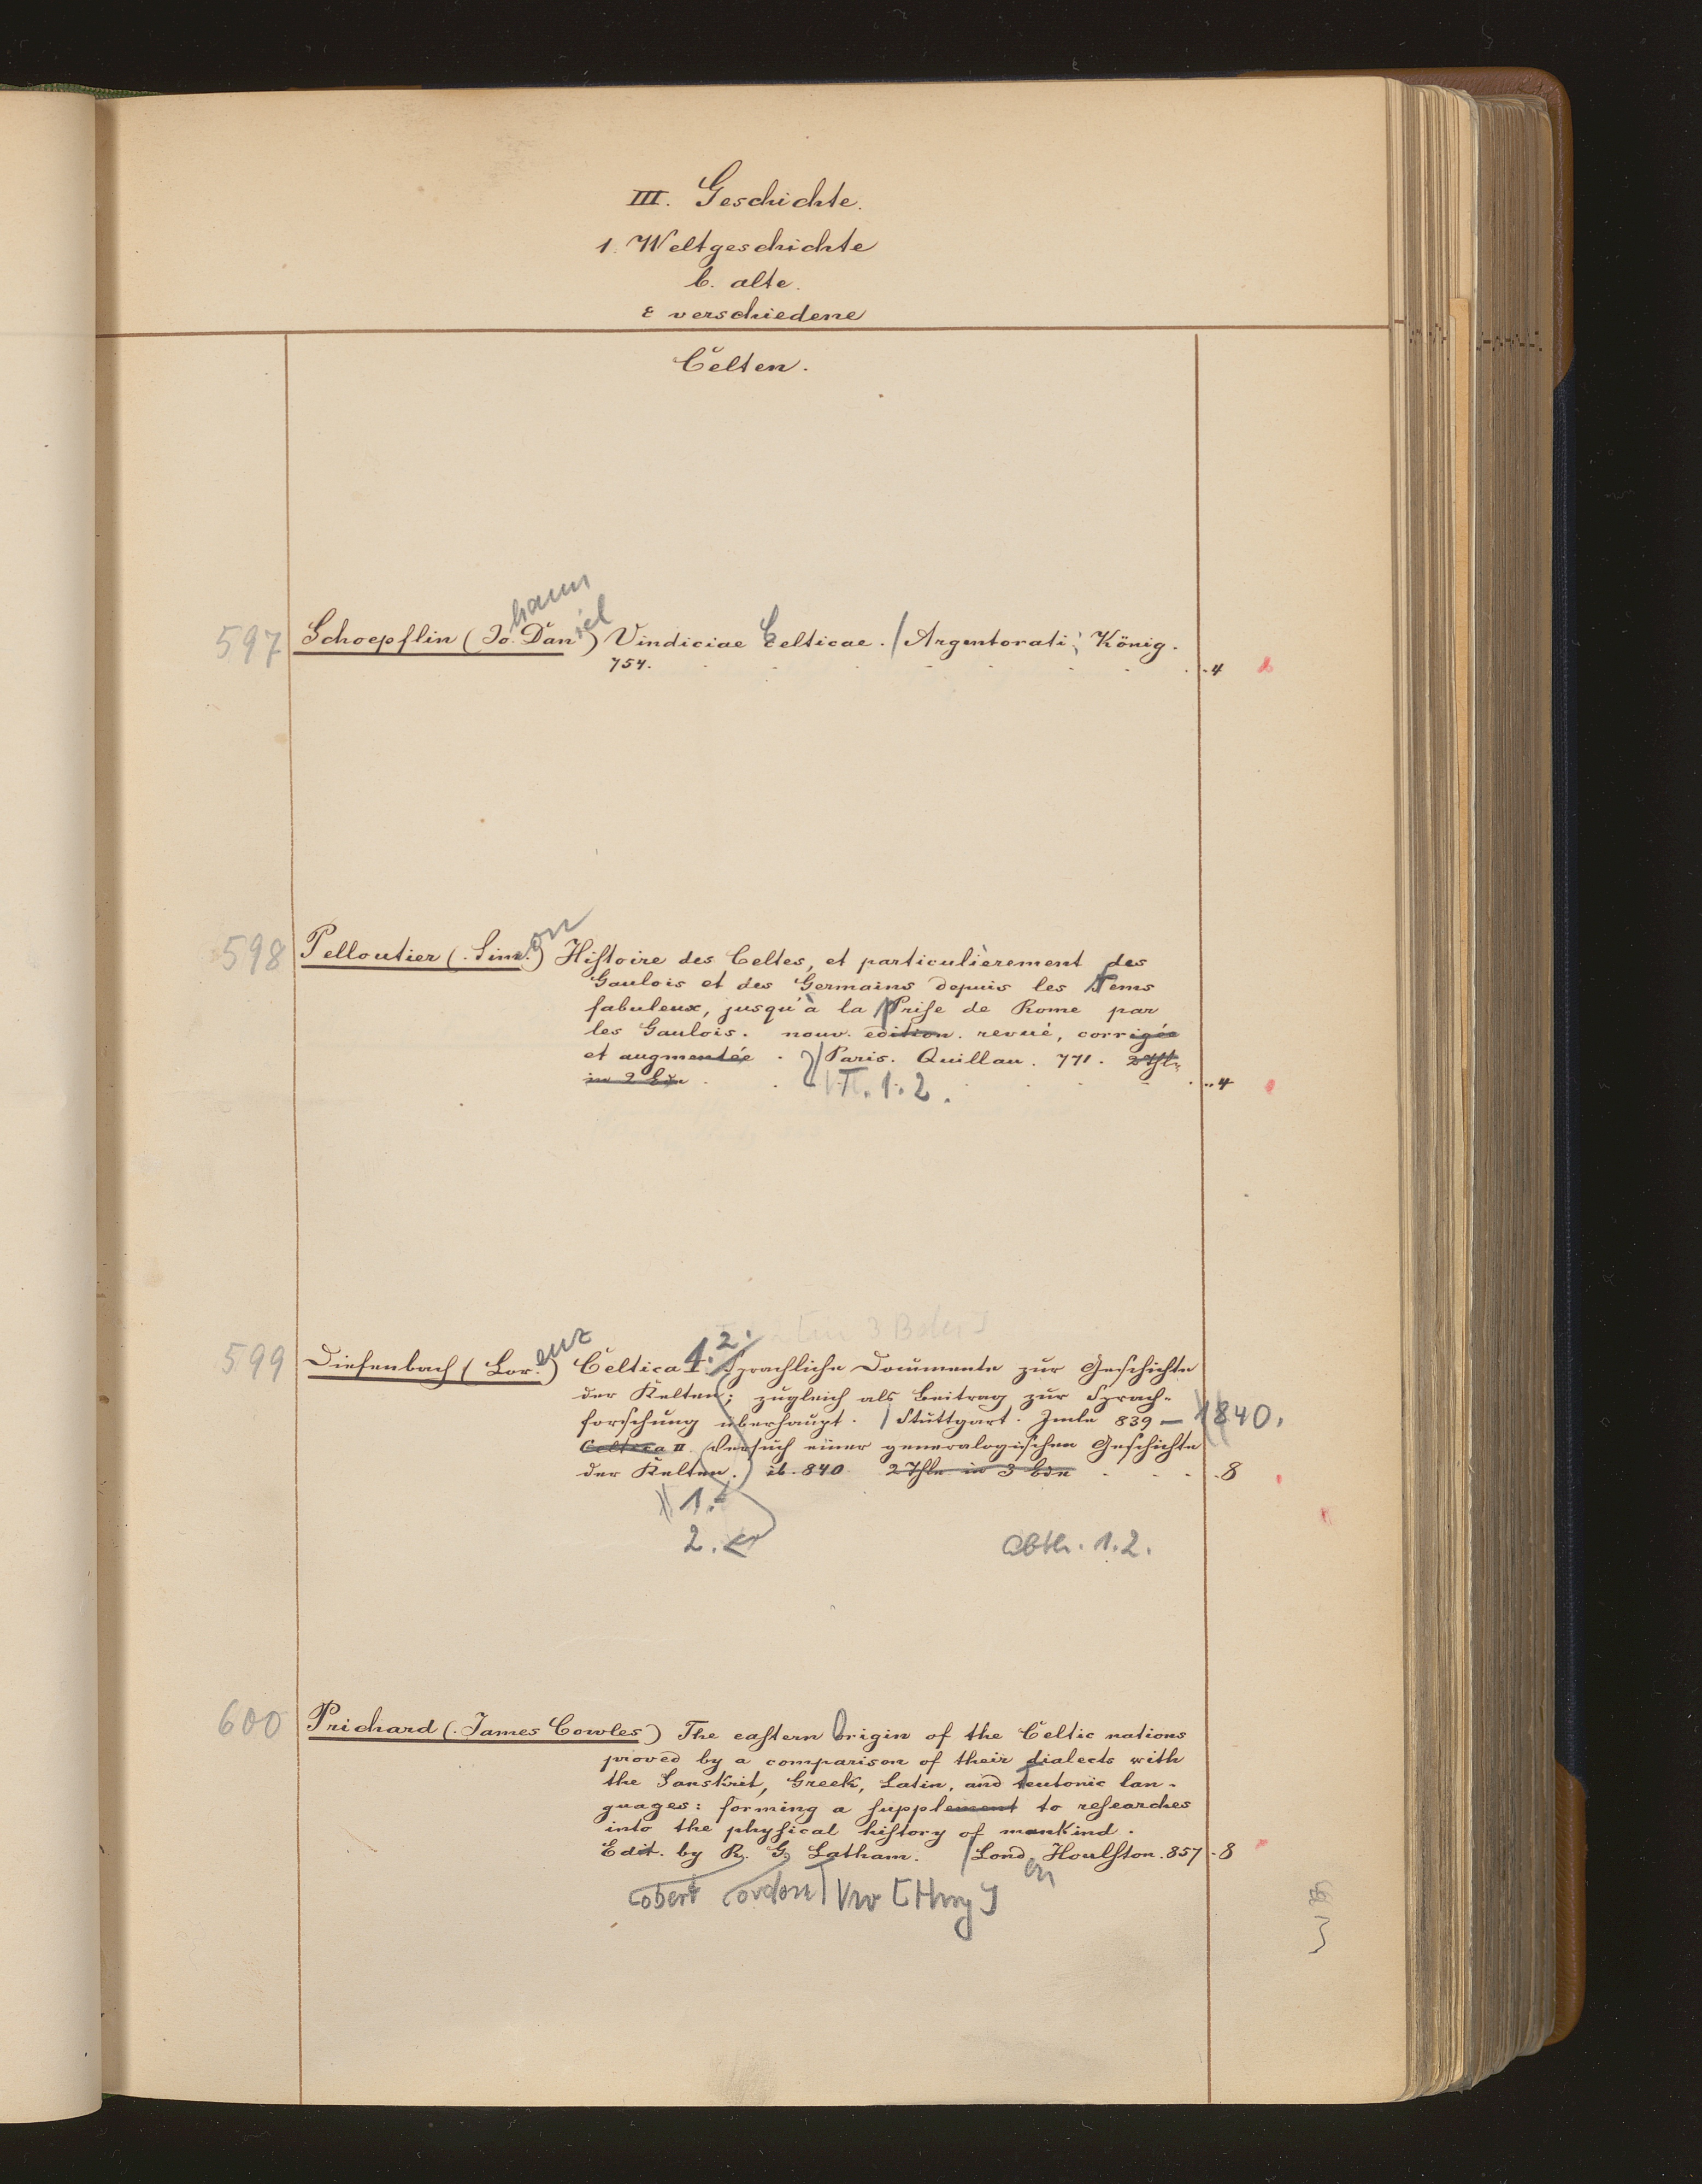 III. Geschichte.
1. Weltgeschichte
b. alte.
ε verschiedene
Celten.
hann
iel
597 Schoepflin (Jo. Dan) Vindiciae Celticae. / Argentorati; König.
754. ..4
on
598 Pelloutier (Sim.) Histoire des Celtes, et particulièrement des
Gaulois et des Germains depuis les Tems
fabuleux, jusqu'à la Prise de Rome par
les Gaulois. nouv. edition. revué, corrigée
et augmentée. / Paris. Quillau. 771. 2 Thle
in 2 Bde ..4
T. 1.2.
3 Bden]
enz 1.2.
599 Diefenbach (Lor.) Celtica I. Sprachliche Documente zur Geschichte
der Kelten; zugleich als Beitrag zur Sprach-
forschung überhaupt. / Stuttgart. Imle 839 — 1840.
Celtica II. Versuch einer genealogischen Geschichte
der Kelten. ib. 840. 2 Thle in 3 Bde .8
1.
2. Abth. 1.2.
600 Prichard (James Cowles) The eastern Origin of the Celtic nations
proved by a comparison of their dialects with
the Sanskrit, Greek, Latin, and teutonic lan-
guages: forming a supplement to researches
into the physical history of mankind.
Edit. by R. G. Latham. / Lond. Houlston. 857 .8
obert ordon on